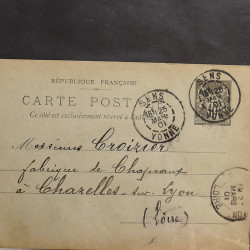 RÉPUBLIQUE FRANÇAISE
CARTE POST
Ce côté est exclusivement réservé à
SENS
MARS
01
YONNE
SENS
MARS
01
YONNE
Messieurs Croizier
fabrique de Chapeaux
à Chazelles-sur-Lyon
(Loire)
MARS
01
LOIRE